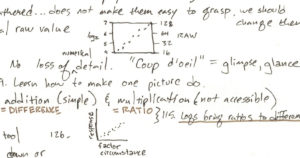 athered...does not make them easy to grasp. we should
change them
al raw value
7 128
6 64 RAW
5 32
4 16
log2
numerical
No loss of detail. "Coup d'oeil" = glimpse, glance
9. Learn how to make one picture do.
addition (simple) & multiplication (not accessible)
= DIFFERENCE = RATIO
} 115. Logs bring ratios to differen
tool 126.
response
factor
circumstance
down or